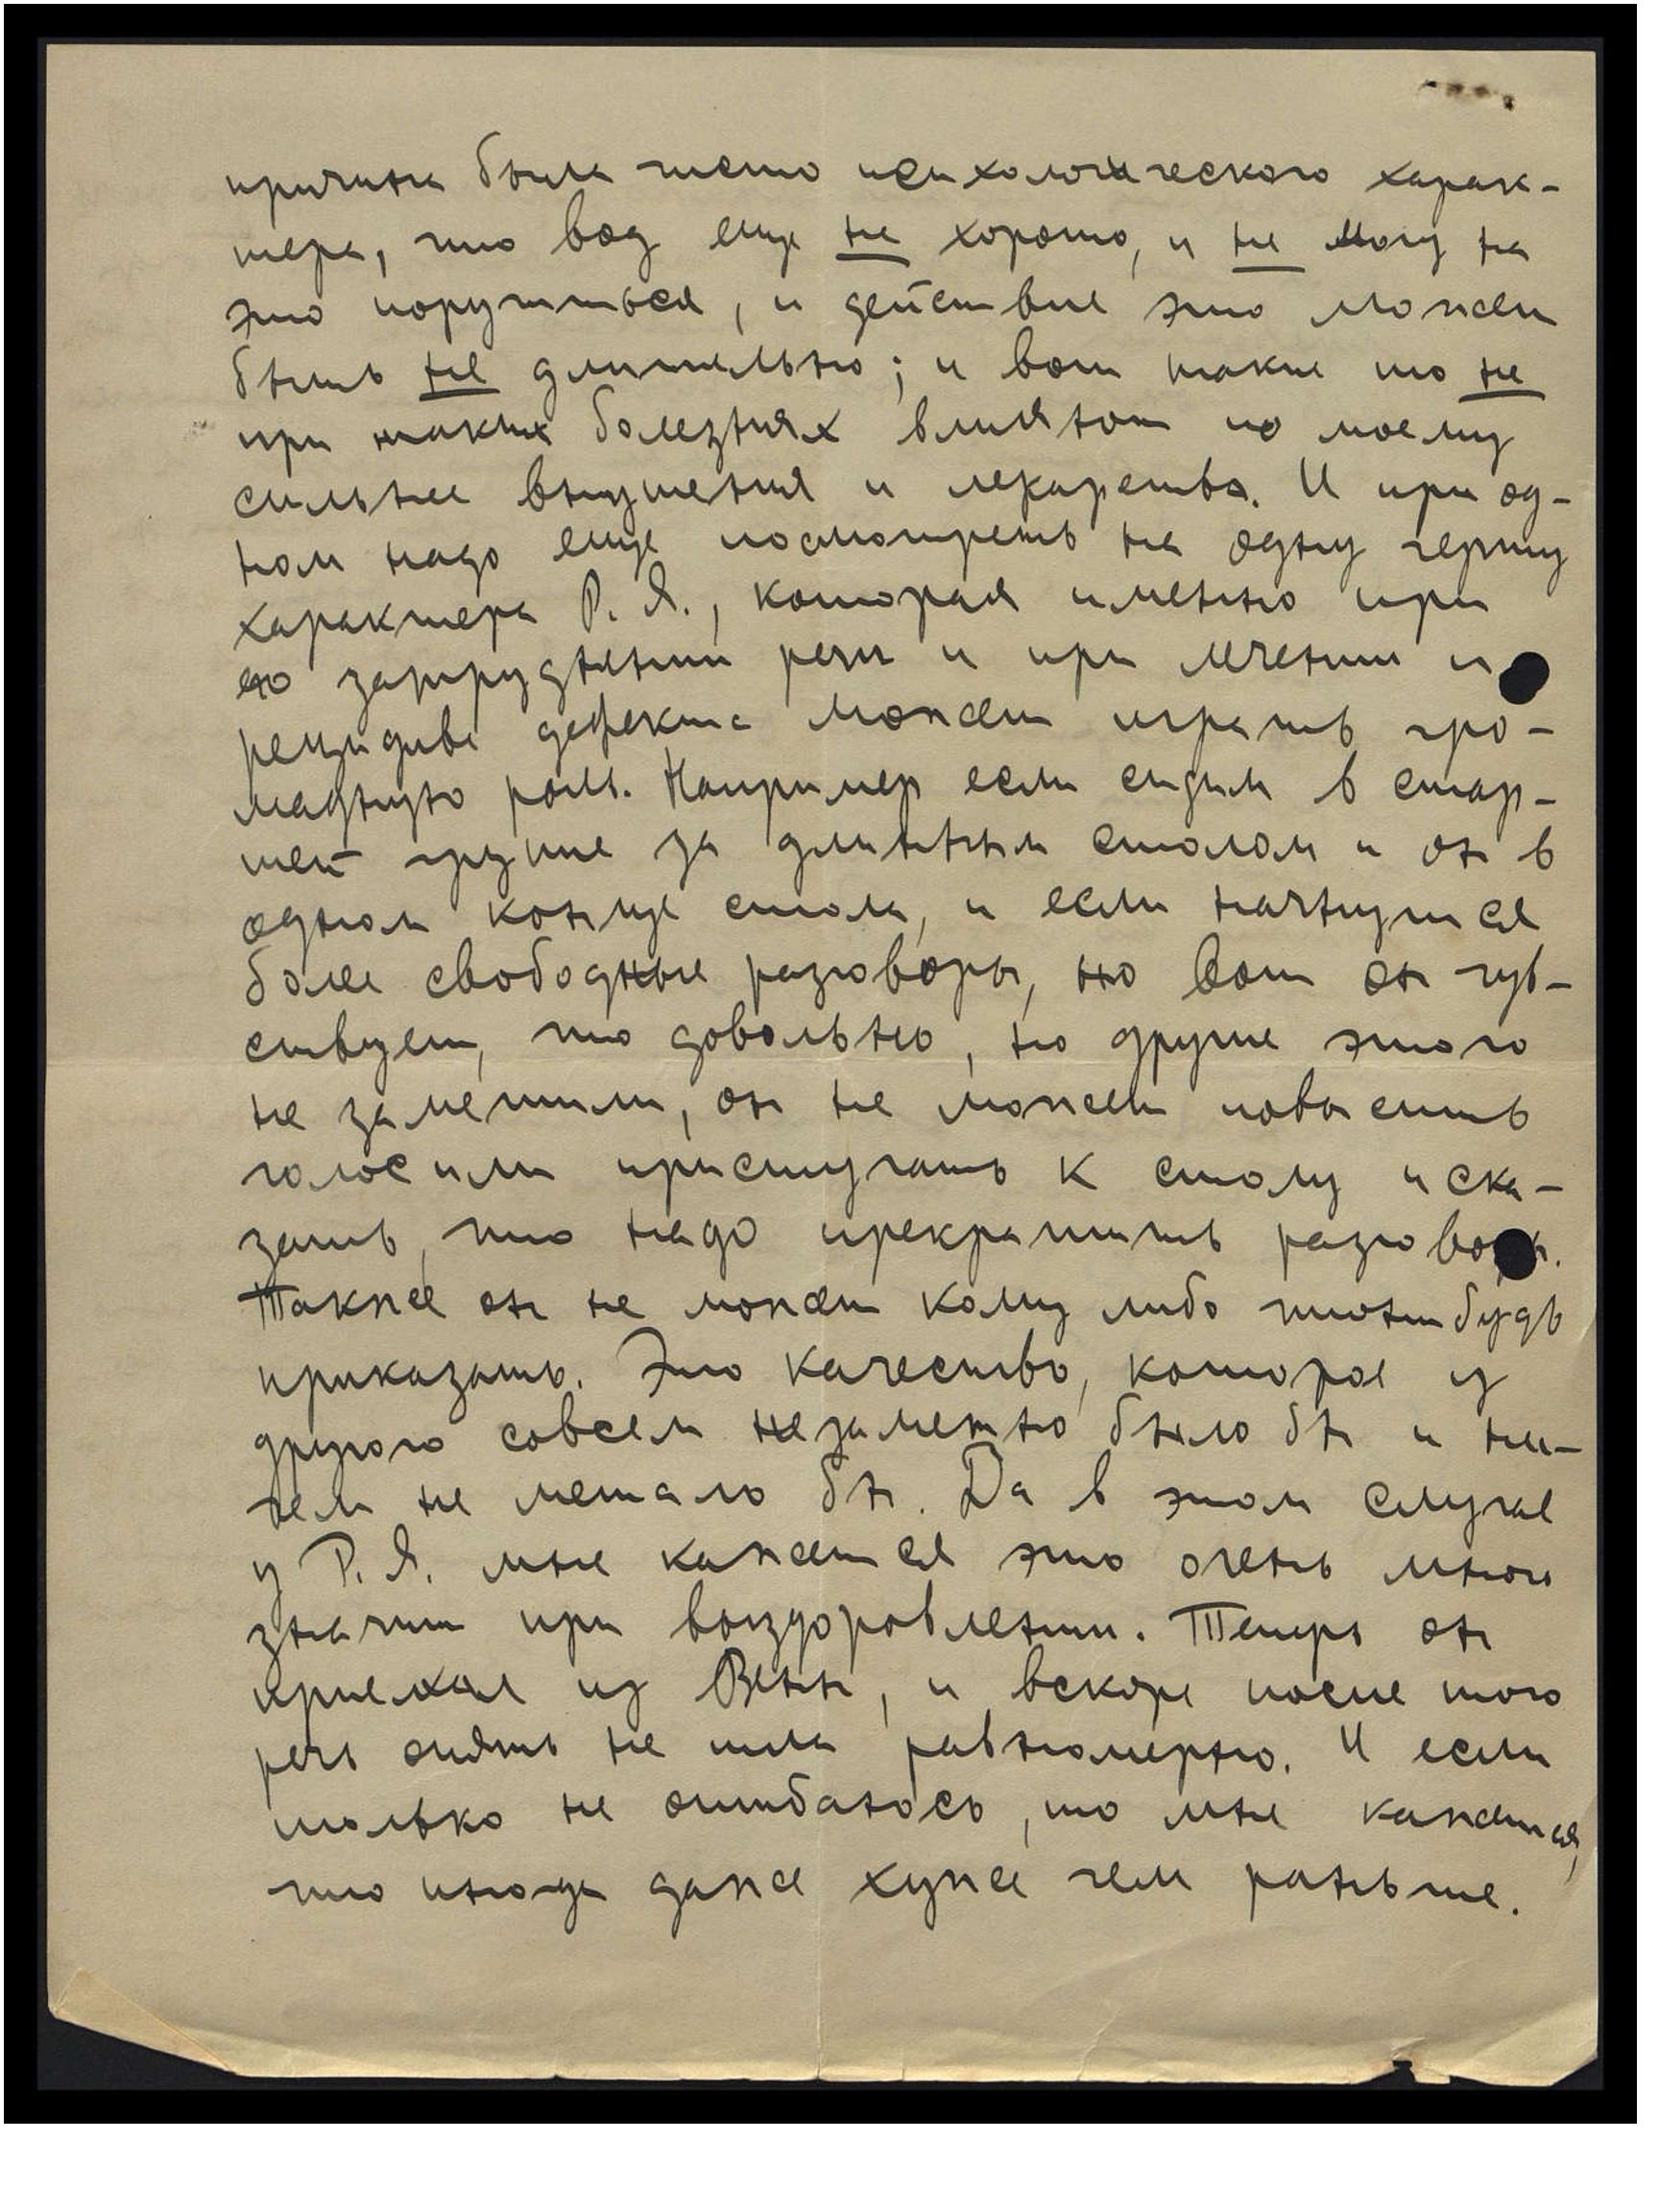 причина была чисто психологического харак-
тера, что вод еще не хорошо, и не могу на
это поручиться, и действие это может
быть не длительно; и вот такие то не
при таких болезнях влияют по моему
сильнее внушения и лекарства. И при од-
ном надо еще посмотреть на одну черту
характера Р. Я., которая именно при
его затруднении речи и при лечении и
рецидиве дефекта может играть гро-
мадную роль. Например если сидим в стар-
шей группе за длинным столом и он в
одном конце стола, и если начнутся
более свободные разговоры, но вот он чув-
ствует, что довольно, но другие этого
не заметили, он не может повысить
голос или пристучать к столу и ска-
зать, что надо прекратить разговоры.
Также он не может кому либо чтонибудь
приказать. Это качество, которое у
другого совсем незаметно было бы и ни-
чем не мешало бы. Да в этом случае
у Р. Я. мне кажется это очень много
значит при выздоровлении. Теперь он
приехал из Вены, и вскоре после того
речь опять не шла равномерно. И если
только не ошибаюсь, то мне кажется,
что иногда даже хуже чем раньше.